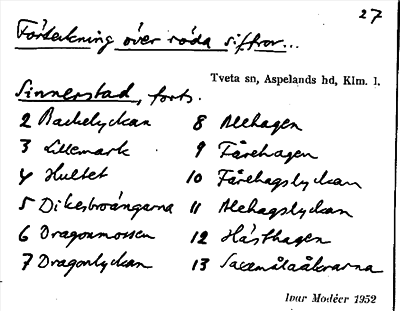 27
Förteckning över röda siffror...
Tveta sn, Aspelands hd, Klm. l.
Sinnerstad, forts.
2 Backelyckan
3 Lillemark
4 Hultet
5 Dikesbroängarna
6 Dragonmossen
7 Dragonlyckan
8 Alehagen
9 Fårehagen
10 Fårehagslyckan
11 Alehagslyckan
12 Hästhagen
13 Saxemålaåkrarna
Ivar Modéer 1952